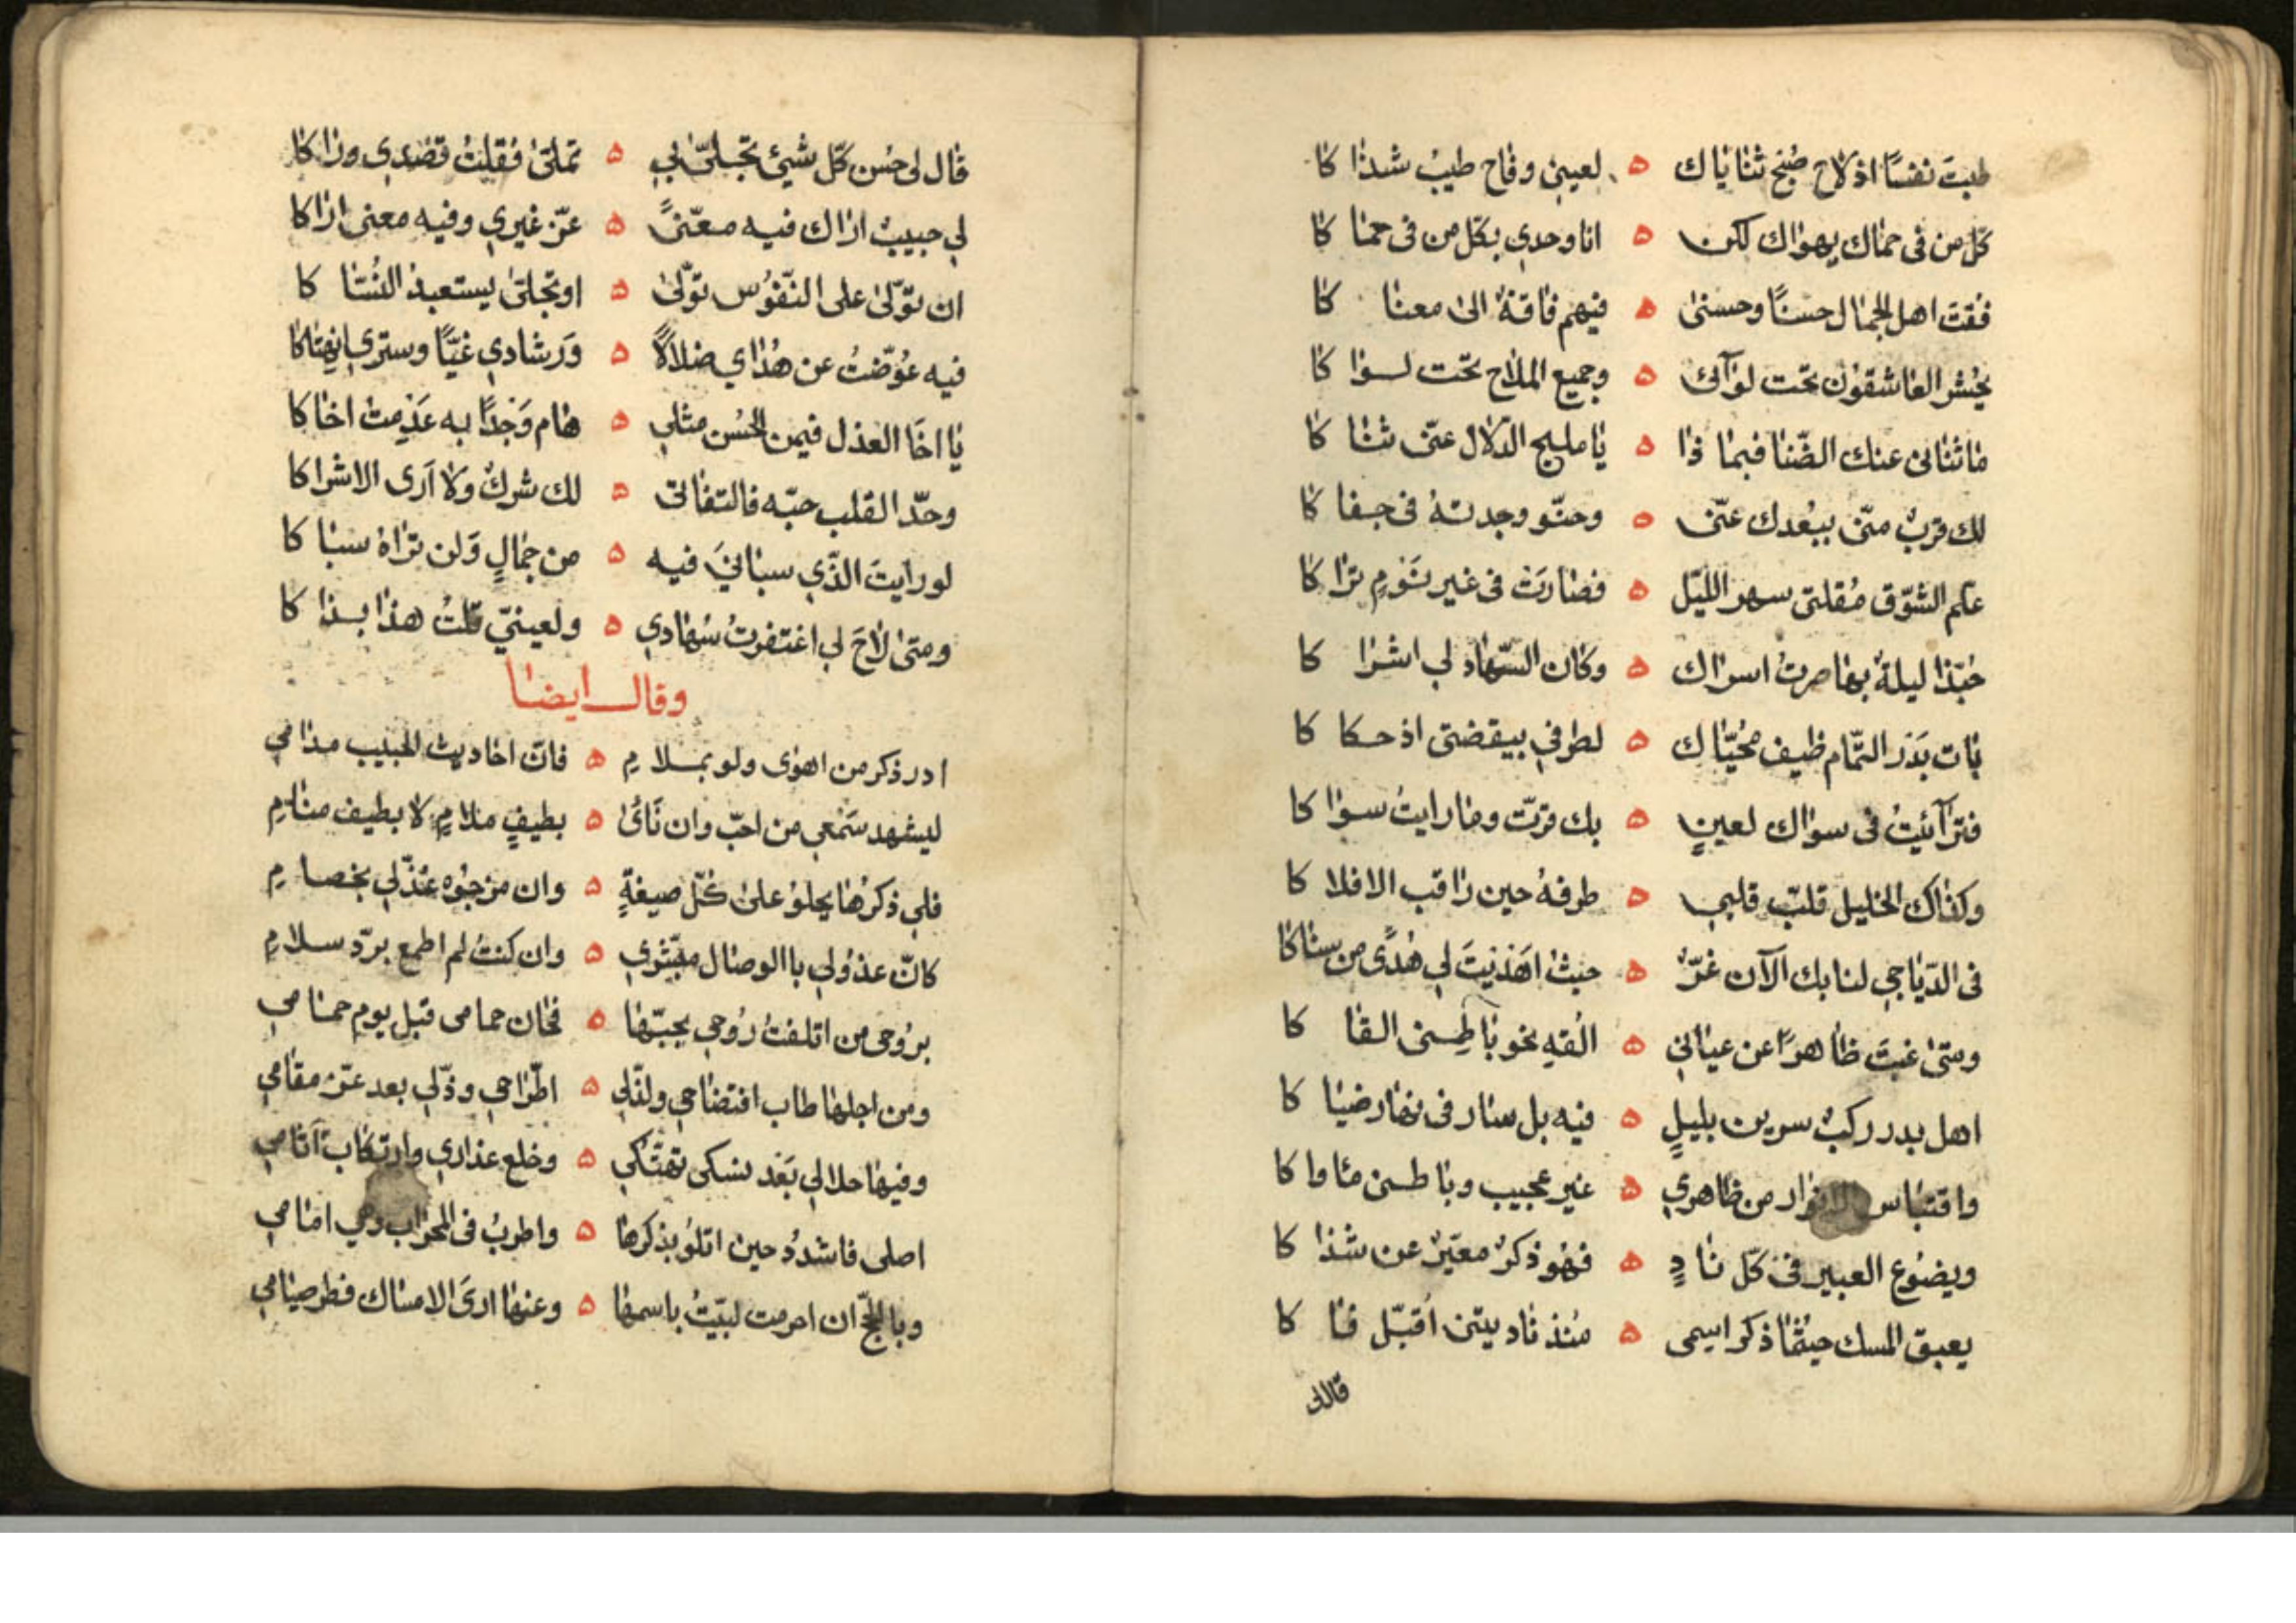 طبت نفسًا اذ لاح صُبح ثناياك ه لعيني وفاح طيبُ شذاكا
كلّ من فى حماك يهواك لكن ه انا وحدي بكلّ من فى حماكا
فقت اهل الجمال حسنًا وحسنى ه فبهم فاقةٌ الى معناكا
يُحشر العاشقون تحت لوآئى ه وجميع الملاح تحت لواكا
ما ثنانى عنك الضّنا فبما ذا ه يا مليح الدّلال عنّى ثناكا
لك قربٌ منّى ببُعدك عنّى ه وحنوّ وجدته فى جفاكا
علّم الشوّق مُقلتى سهر الليّل ه فصارَت فى غير نَومٍ تراكا
حبّذا ليلةٌ بها صرتُ اسراك ه وكان السّهاد لي اشراكا
بات بَدر التّمام طيف محيّاك ه لطرفي بيقضتى اذ حكا كا
فترآئيتُ فى سواك لعينٍ ه بك قرّت وما رايتُ سواكا
وكذاك الخليل قلبّ قلبي ه طرفهُ حين راقب الافلاكا
فى الدّياجي لنا بك الآن غرٌّ ه حيث اهَديتَ لي هُدًى من سناكا
ومتىٰ غبتَ ظاهرًا عن عياني ه القهِ نحو باطِنى القاكا
اهل بدر ركبٌ سرين بليلٍ ه فيه بل سار فى نهار ضياكا
واقتباس الانوار من ظاهري ه غير عجيب وباطنى ماواكا
ويضوُع العبير فى كلّ نادٍ ه فهُو ذكرٌ معبّرٌ عن شذاكا
يعبق المسك حيثما ذكر اسمى ه مُنذ ناديتنى اُقبّل فاكا
قال لى
قال لى حُسن كلّ شيئ تجلىّ بي ه تملىّ فقلتُ قصدي وراكا
لي حبيبٌ اراك فيه معنّىً ه غرّ غيري وفيه معنى اراكا
ان تولّىٰ على النّفوُس تولّىٰ ه او تجلىّ يستعبد النُسّاكا
فيه عوُّضتُ عن هُداي ضلالاً ه وَرشادي غيًّا وستري انهتاكا
يا اخَا العذل فيمن الحُسن مثلي ه هام وَجدًا به عَدِمت اخاكا
وحّد القلب حبّه فالتفاتى ه لك شركٌ وَلا اَرى الاشراكا
لو رايتَ الذّي سبانيَ فيه ه من جمالٍ وَلن تراهُ سباكا
ومتىٰ لاحَ لي اغتفرتُ سُهادي ه ولعينيّ قلتُ هذا بذاكا
وقال ايضا
ادر ذكر من اهوٰى ولو بملامِ ه فانّ احاديث الحبيب مدامي
ليشهد سَمعي من احبّ وان نَأىٰ ه بطيفِ ملامٍ لا بطيف منامِ
فلي ذكرُها يحلوُ علىٰ كُلّ صيغةٍ ه وان مزجوُه عُذّلي بخصامِ
كانّ عذوُلي باالوصال مبشّري ه وان كنتُ لم اطمع بردّ سلامِ
بروُحى من اتلفتُ رُوحي بحبّها ه فحان حمامى قبل يوم حمامي
ومن اجلها طاب افتضاحي ولذّلي ه اطّراحي وذّلي بعد عزّ مقامي
وفيها حلا لي بَعد نسكى تهتّكي ه وخلع عذاري وارتكاب آثامي
اصلى فاشدوُ حين اتلوُ بذكرها ه واطربُ فى المحراب وهي امامي
وبالحجّ ان احرمت لبيّتُ باسمها ه وعنها ارىَ الامساك فطر صيامي